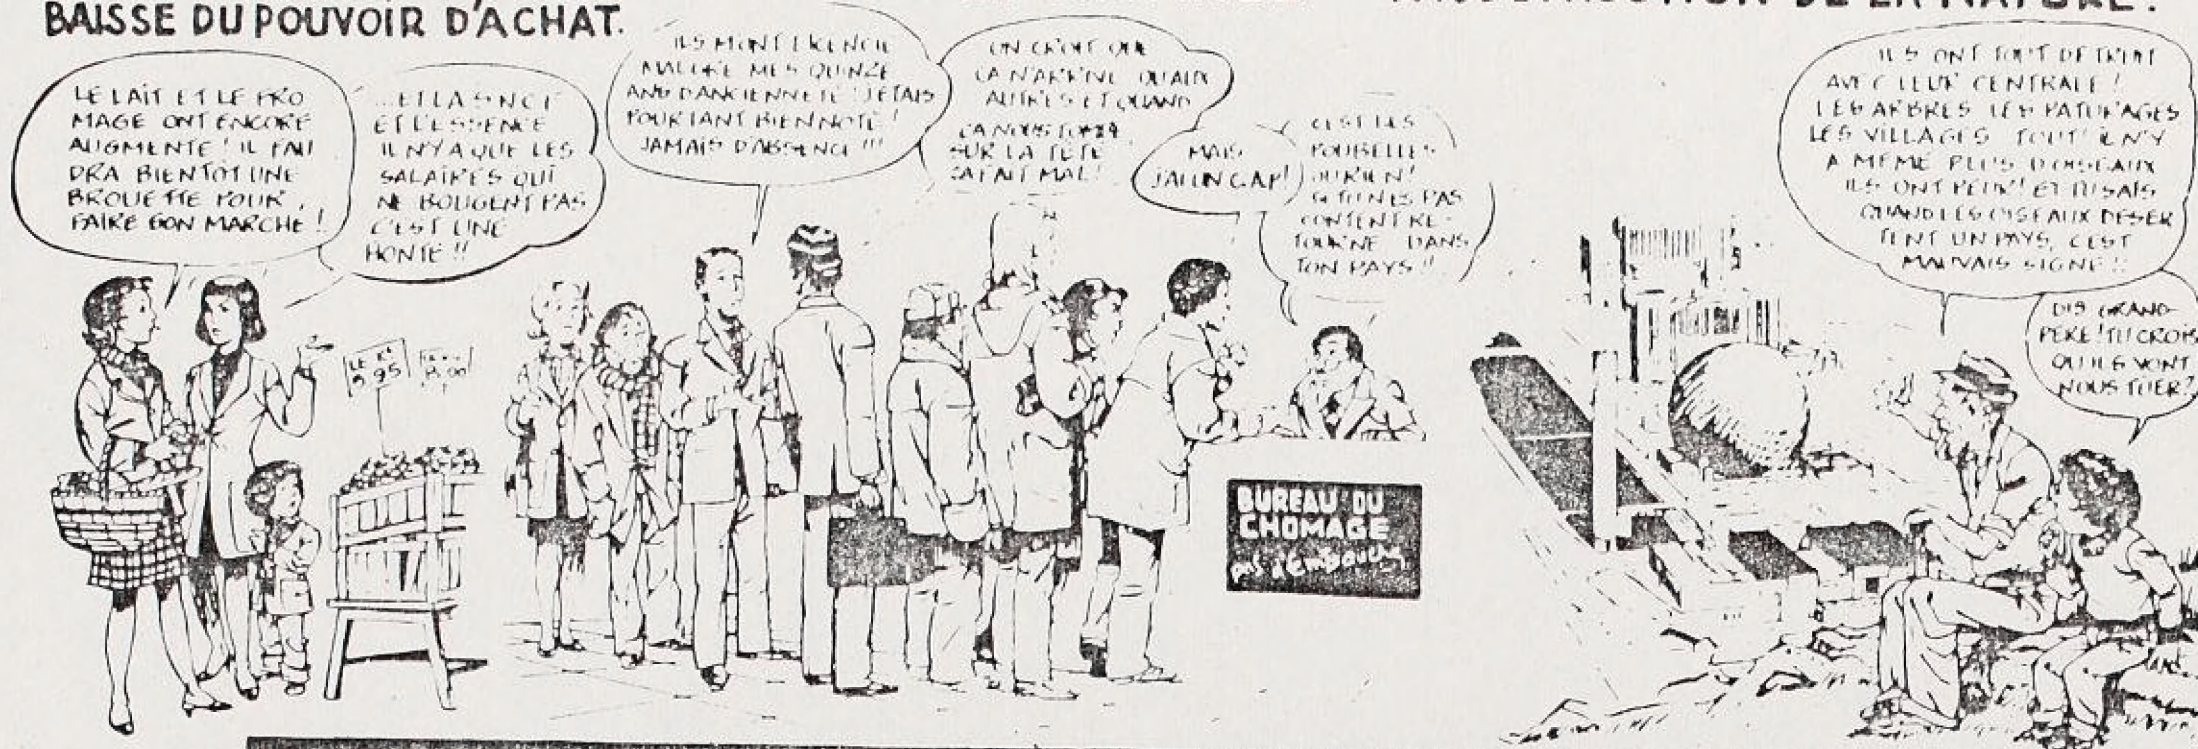 BAISSE DU POUVOIR D'ACHAT.
DE LA NATURE.
LE LAIT ET LE FRO
MAGE ONT ENCORE
AUGMENTE! IL FAU
DRA BIENTOT UNE
BROUETTE POUR
FAIRE SON MARCHE!
...ET LA SNCF
ET L'ESSENCE
IL N'Y A QUE LES
SALAIRES QUI
NE BOUGENT PAS
C'EST UNE
HONTE!!
ILS M'ONT LICENCIE
MALGRE MES QUINZE
ANS D'ANCIENNETE! J'ETAIS
POURTANT BIEN NOTE!
JAMAIS D'ABSENCE!!!
ON CROIT QUE
CA N'ARRIVE QU'AUX
AUTRES ET QUAND
CA NOUS TOMBE
SUR LA TETE
CA FAIT MAL!
MAIS
J'AI UN CAP!
C'EST LES
POUBELLES
OU RIEN!
SI TU N'ES PAS
CONTENT RE-
TOURNE DANS
TON PAYS!!
LE KL
5.95
BUREAU DU
CHOMAGE
pas d'embauche
ILS ONT TOUT DETRUIT
AVEC LEUR CENTRALE!
LES ARBRES LES PATURAGES
LES VILLAGES TOUT! IL N'Y
A MEME PLUS D'OISEAUX
ILS ONT PEUR! ET TU SAIS
QUAND LES OISEAUX DESER
TENT UN PAYS, C'EST
MAUVAIS SIGNE!!
DIS GRAND-
PERE! TU CROIS
QU'ILS VONT
NOUS TUER?